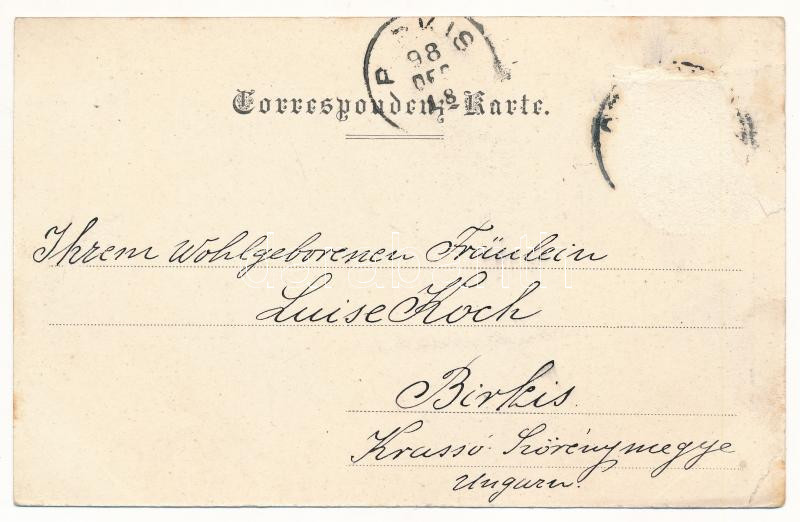 98
DEC
Correspondenz-Karte.
Ihrem Wohlgeborenen Fräulein
Luise Koch
Birkis.
Krassó-Szörénymegye
Ungarn.